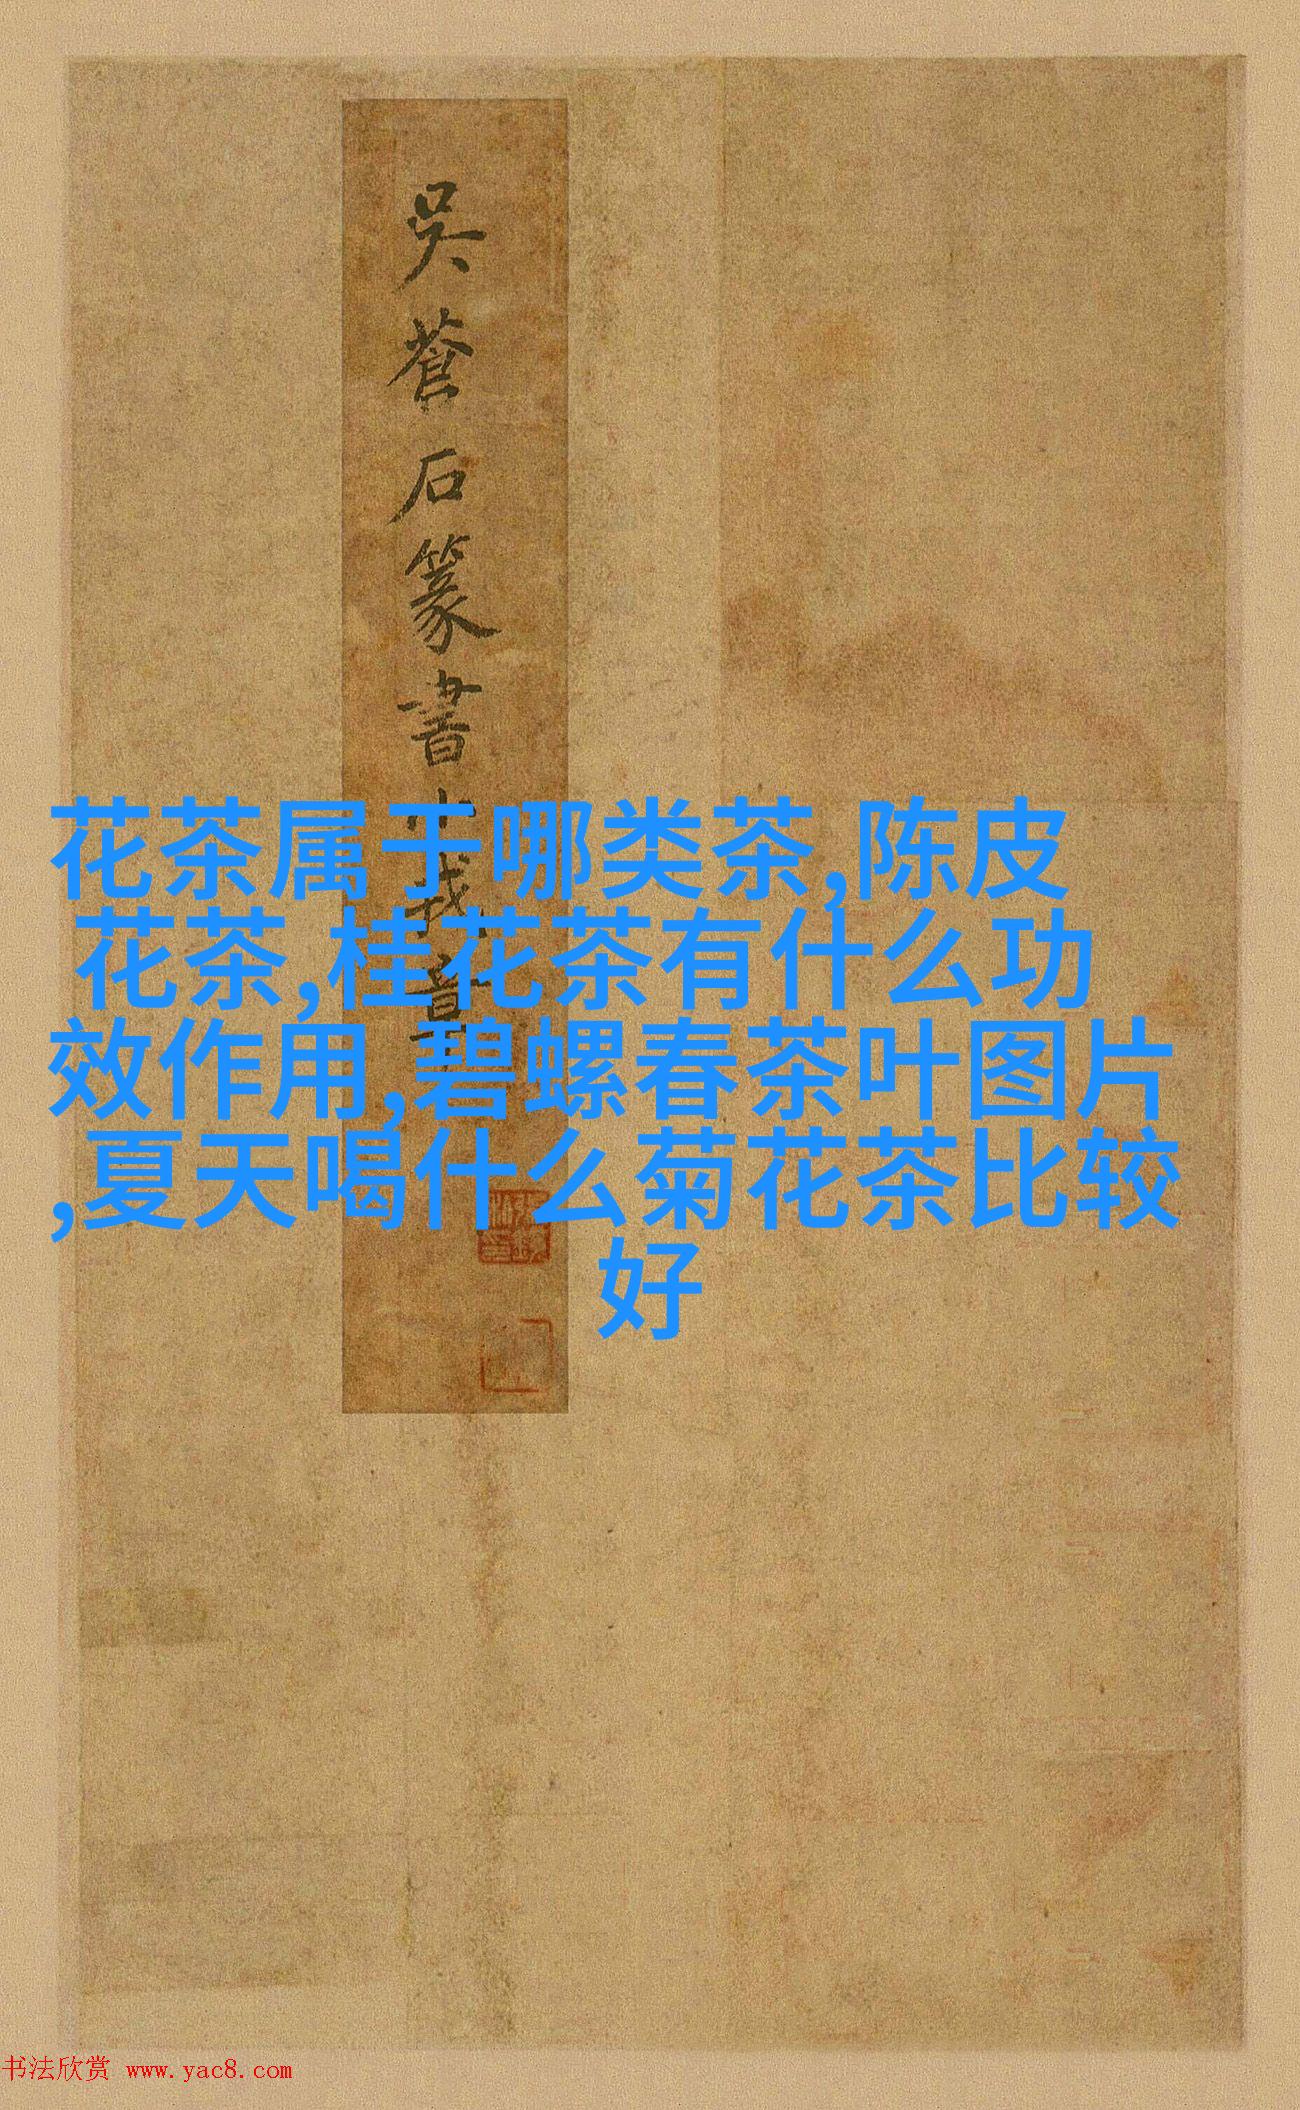 吳蒼石篆書
花茶属于哪类茶,陈皮
花茶,桂花茶有什么功
效作用,碧螺春茶叶图片
,夏天喝什么菊花茶比较
好
书法欣赏 www.yac8.com